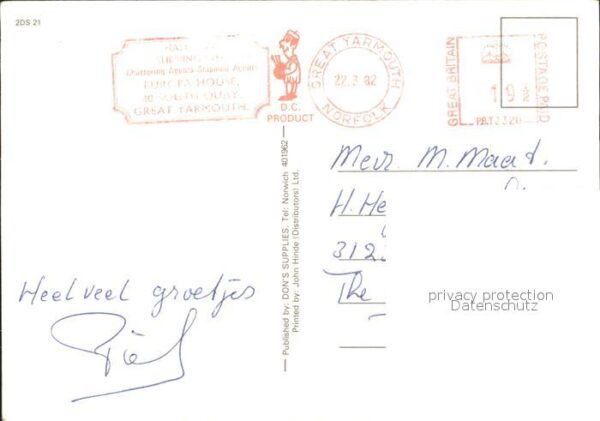 2DS 21
Chartering Agents-Shipping Agents
EUROPA HOUSE,
40 SOUTH QUAY,
GREAT YARMOUTH.
D.C.
PRODUCT
GREAT YARMOUTH
22.3.82
NORFOLK
GREAT BRITAIN
POSTAGE PAID
19½
P.B.T2320
Published by: DON'S SUPPLIES. Tel: Norwich 401962
Printed by: John Hinde (Distributors) Ltd.
Mevr. M. Maat.
H. He
312
The
Heel veel groetjes
privacy protection
Datenschutz